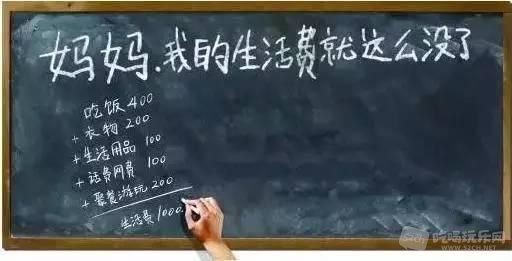 妈妈.我的生活费就这么没了
吃饭 400
+ 衣物 200
+ 生活用品 100
+ 话费网费 100
+ 聚餐游玩 200
生活费 1000
吃喝玩乐网
WWW.52CH.NET